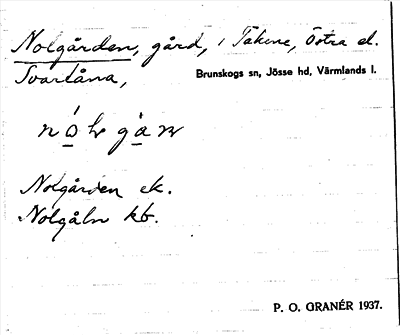 Nolgården, gård, i Takene, Östra el.
Svartåna,
Brunskogs sn, Jösse hd, Värmlands l.
Nolgården ek.
Nolgåln kb.
P. O. GRANÉR 1937.